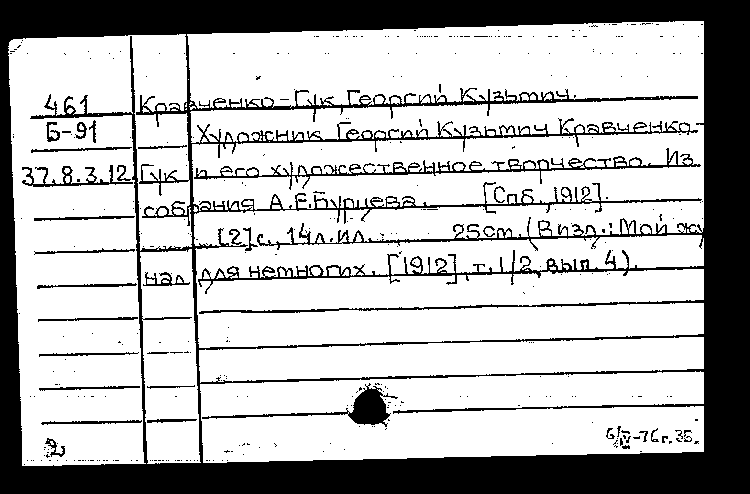 461 Кравченко-Гук, Георгий Кузьмич.
Б-91 Художник Георгий Кузьмич Кравченко-
37.8.3.12. Гук и его художественное творчество. Из
собрания А.Е.Бурцева. [Спб., 1912].
[2]с., 14л.ил. 25cm. (В изд.: Мой жу
нал для немногих. [1912], т.1/2, вып.4).
2
6/IV-76г. 35.